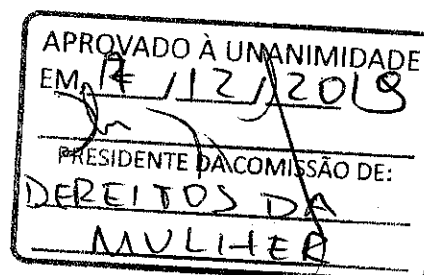 APROVADO À UNANIMIDADE
EM 17 / 12 / 2019
PRESIDENTE DA COMISSÃO DE:
DEREITOS DA
MULHER